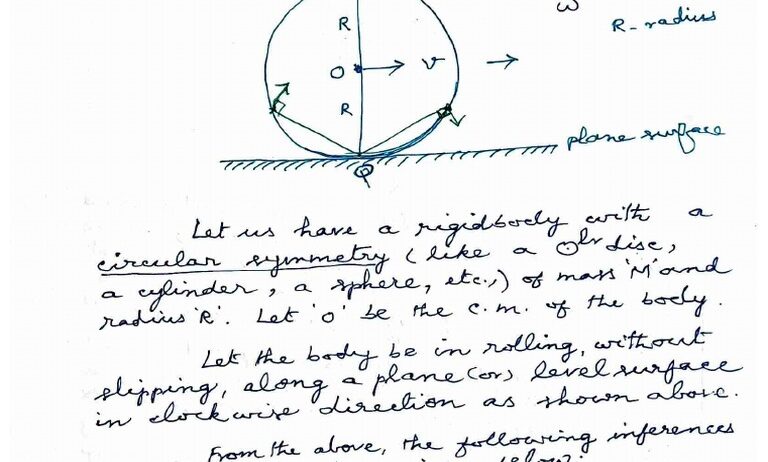 ω
R
R - radius
O
v
R
plane surface
Q
Let us have a rigidbody with a
circular symmetry (like a Olar disc,
a cylinder, a sphere, etc.,) of mass 'M' and
radius 'R'. Let 'O' be the c.m. of the body.
Let the body be in rolling, without
slipping, along a plane (or) level surface
in clockwise direction as shown above.
From the above, the following inferences
below: